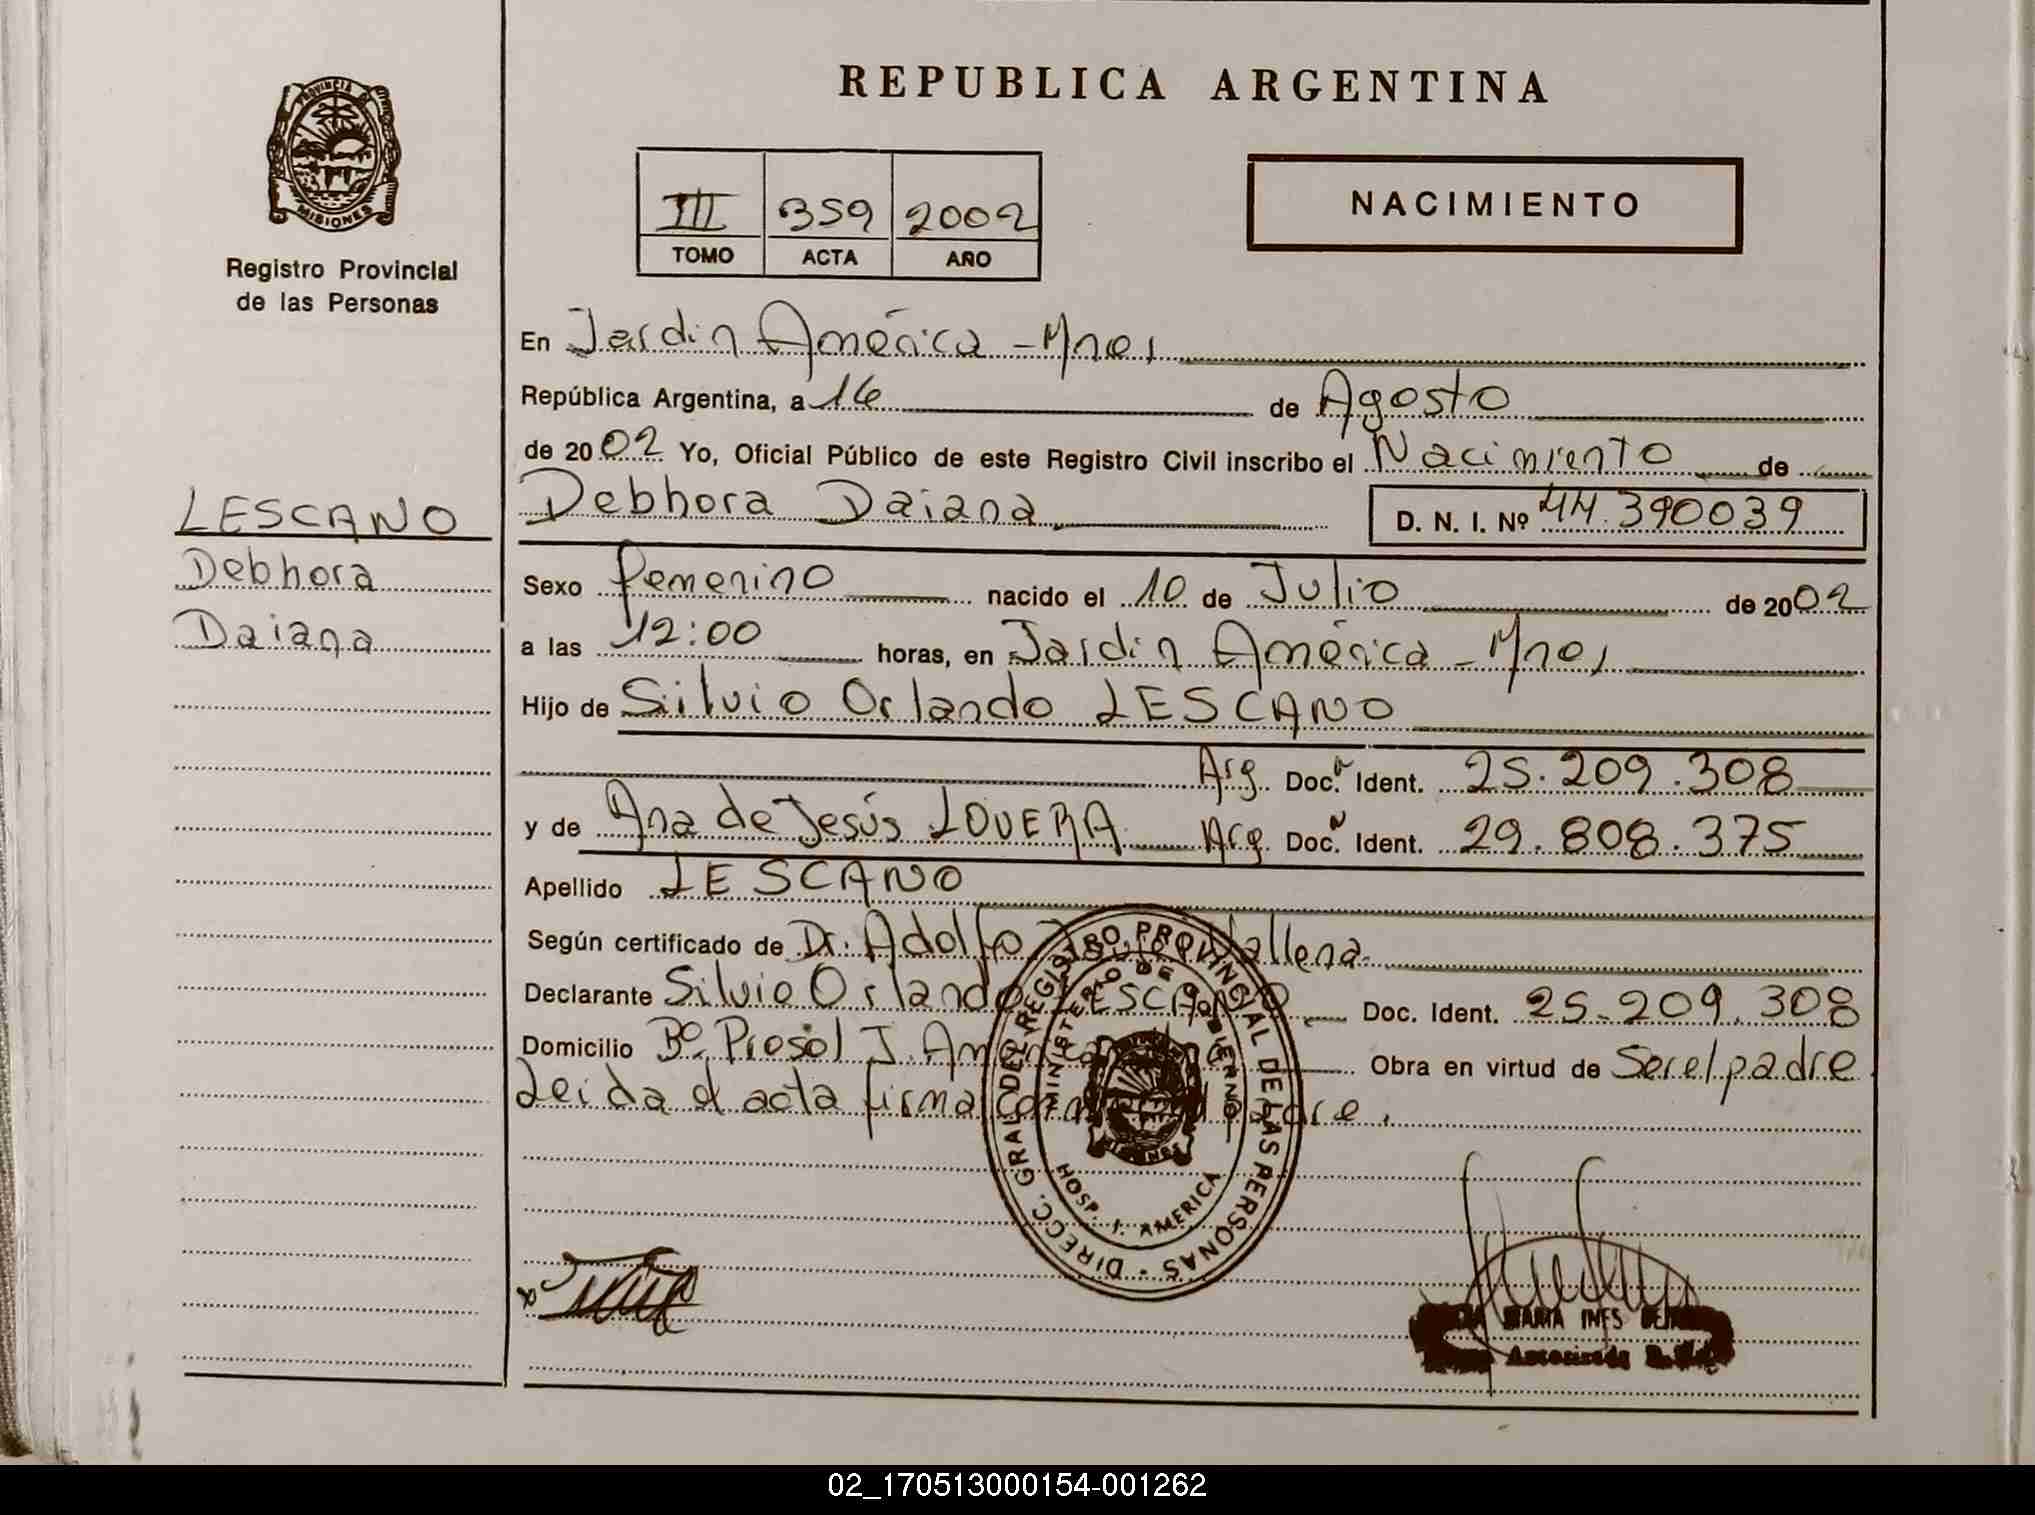 REPUBLICA ARGENTINA
PROVINCIA DE
MISIONES
Registro Provincial
de las Personas
III 359 2002
TOMO ACTA AÑO
NACIMIENTO
En Jardin América - Mnes,
República Argentina, a 16 de Agosto
de 2002 Yo, Oficial Público de este Registro Civil inscribo el Nacimiento de
LESCANO
Debhora
Daiana
Debhora Daiana D. N. I. Nº 44.390039
Sexo femenino nacido el 10 de Julio de 2002
a las 12:00 horas, en Jardin América - Mnes,
Hijo de Silvio Orlando LESCANO
Arg. Doc. Ident. 25.209.308
y de Ana de Jesús LOVERA Arg. Doc. Ident. 29.808.375
Apellido LESCANO
Según certificado de Dr. Adolfo Wallena
Declarante Silvio Orlando LESCANO Doc. Ident. 25.209.308
Domicilio Bº Prosol J. América Obra en virtud de Ser el padre
Leida el acta firma conmigo el padre.
DIRECC. GRAL DEL REGISTRO PROVINCIAL DE LAS PERSONAS
MINISTERIO DE GOBIERNO
HOSP. J. AMERICA
MARIA INES
Autorizada
02_170513000154-001262